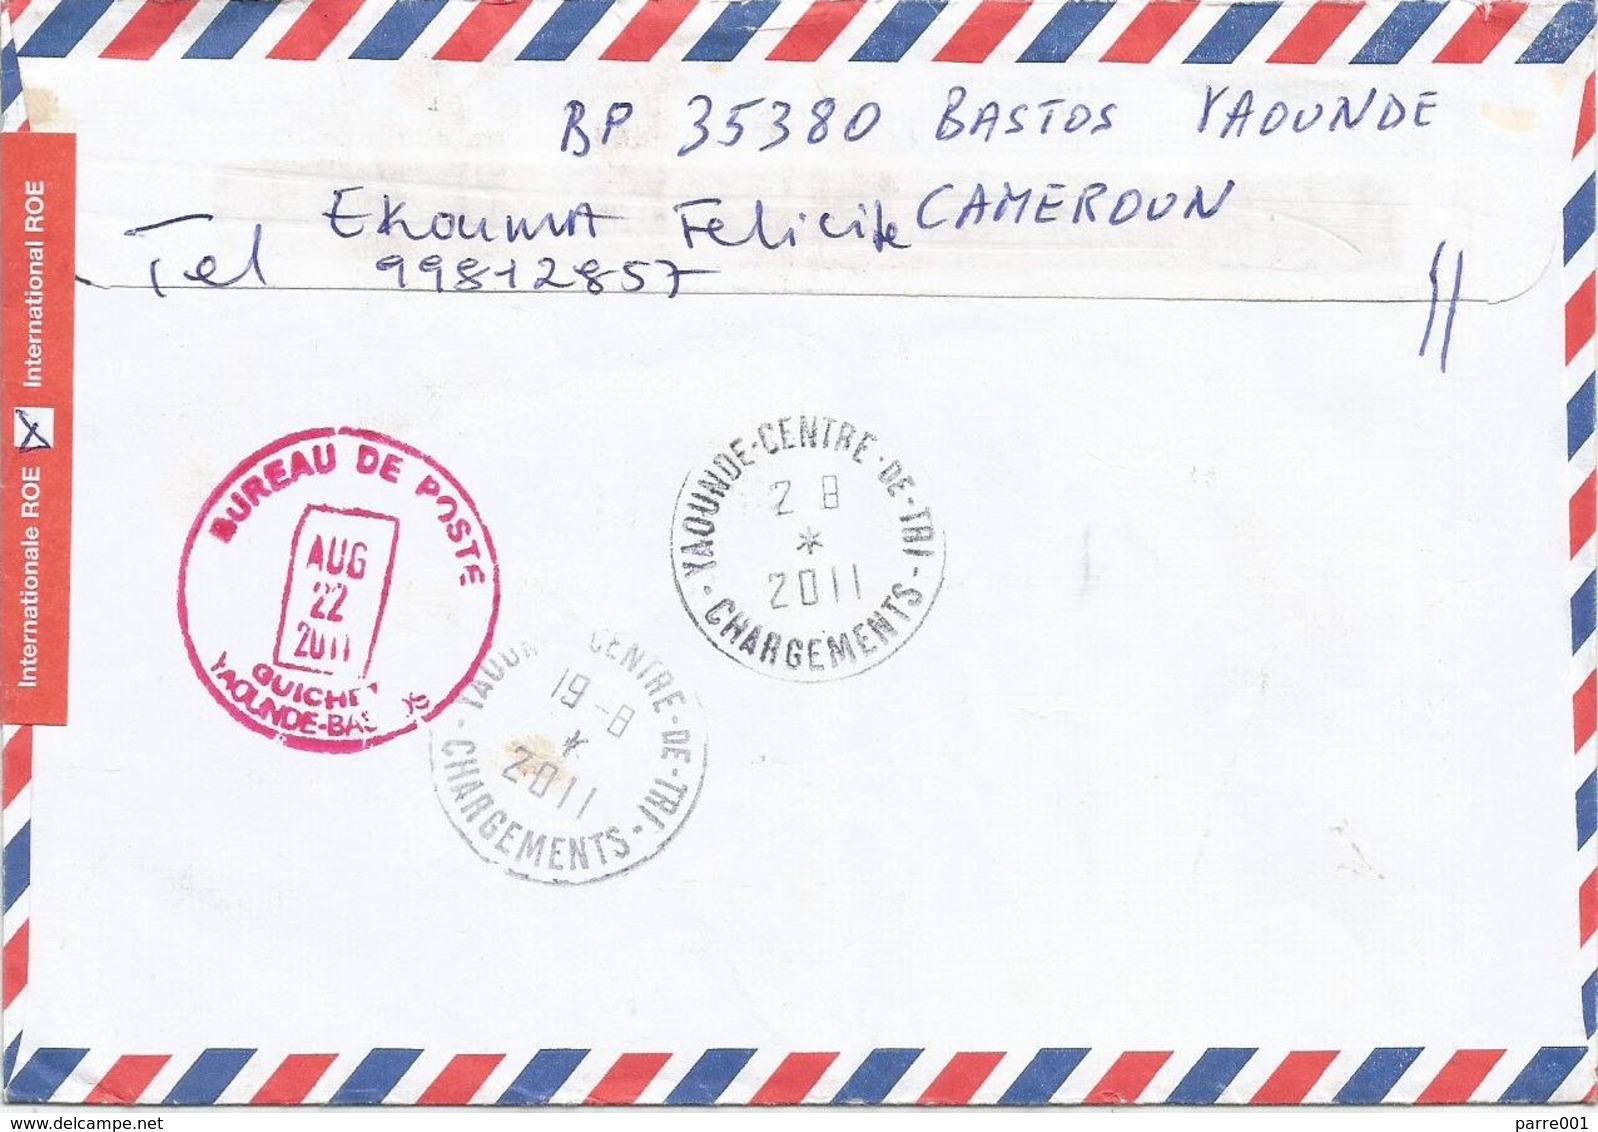 BP 35380 BASTOS YAOUNDE
EKOUMA Felicite CAMEROUN
Tel 99812857
Internationale ROE X International ROE
BUREAU DE POSTE
AUG
22
2011
YAOUNDE-CENTRE-DE-TRI
2 8
*
2011
CHARGEMENTS
CENTRE-DE-TRI
19-8
*
2011
CHARGEMENTS
parre001